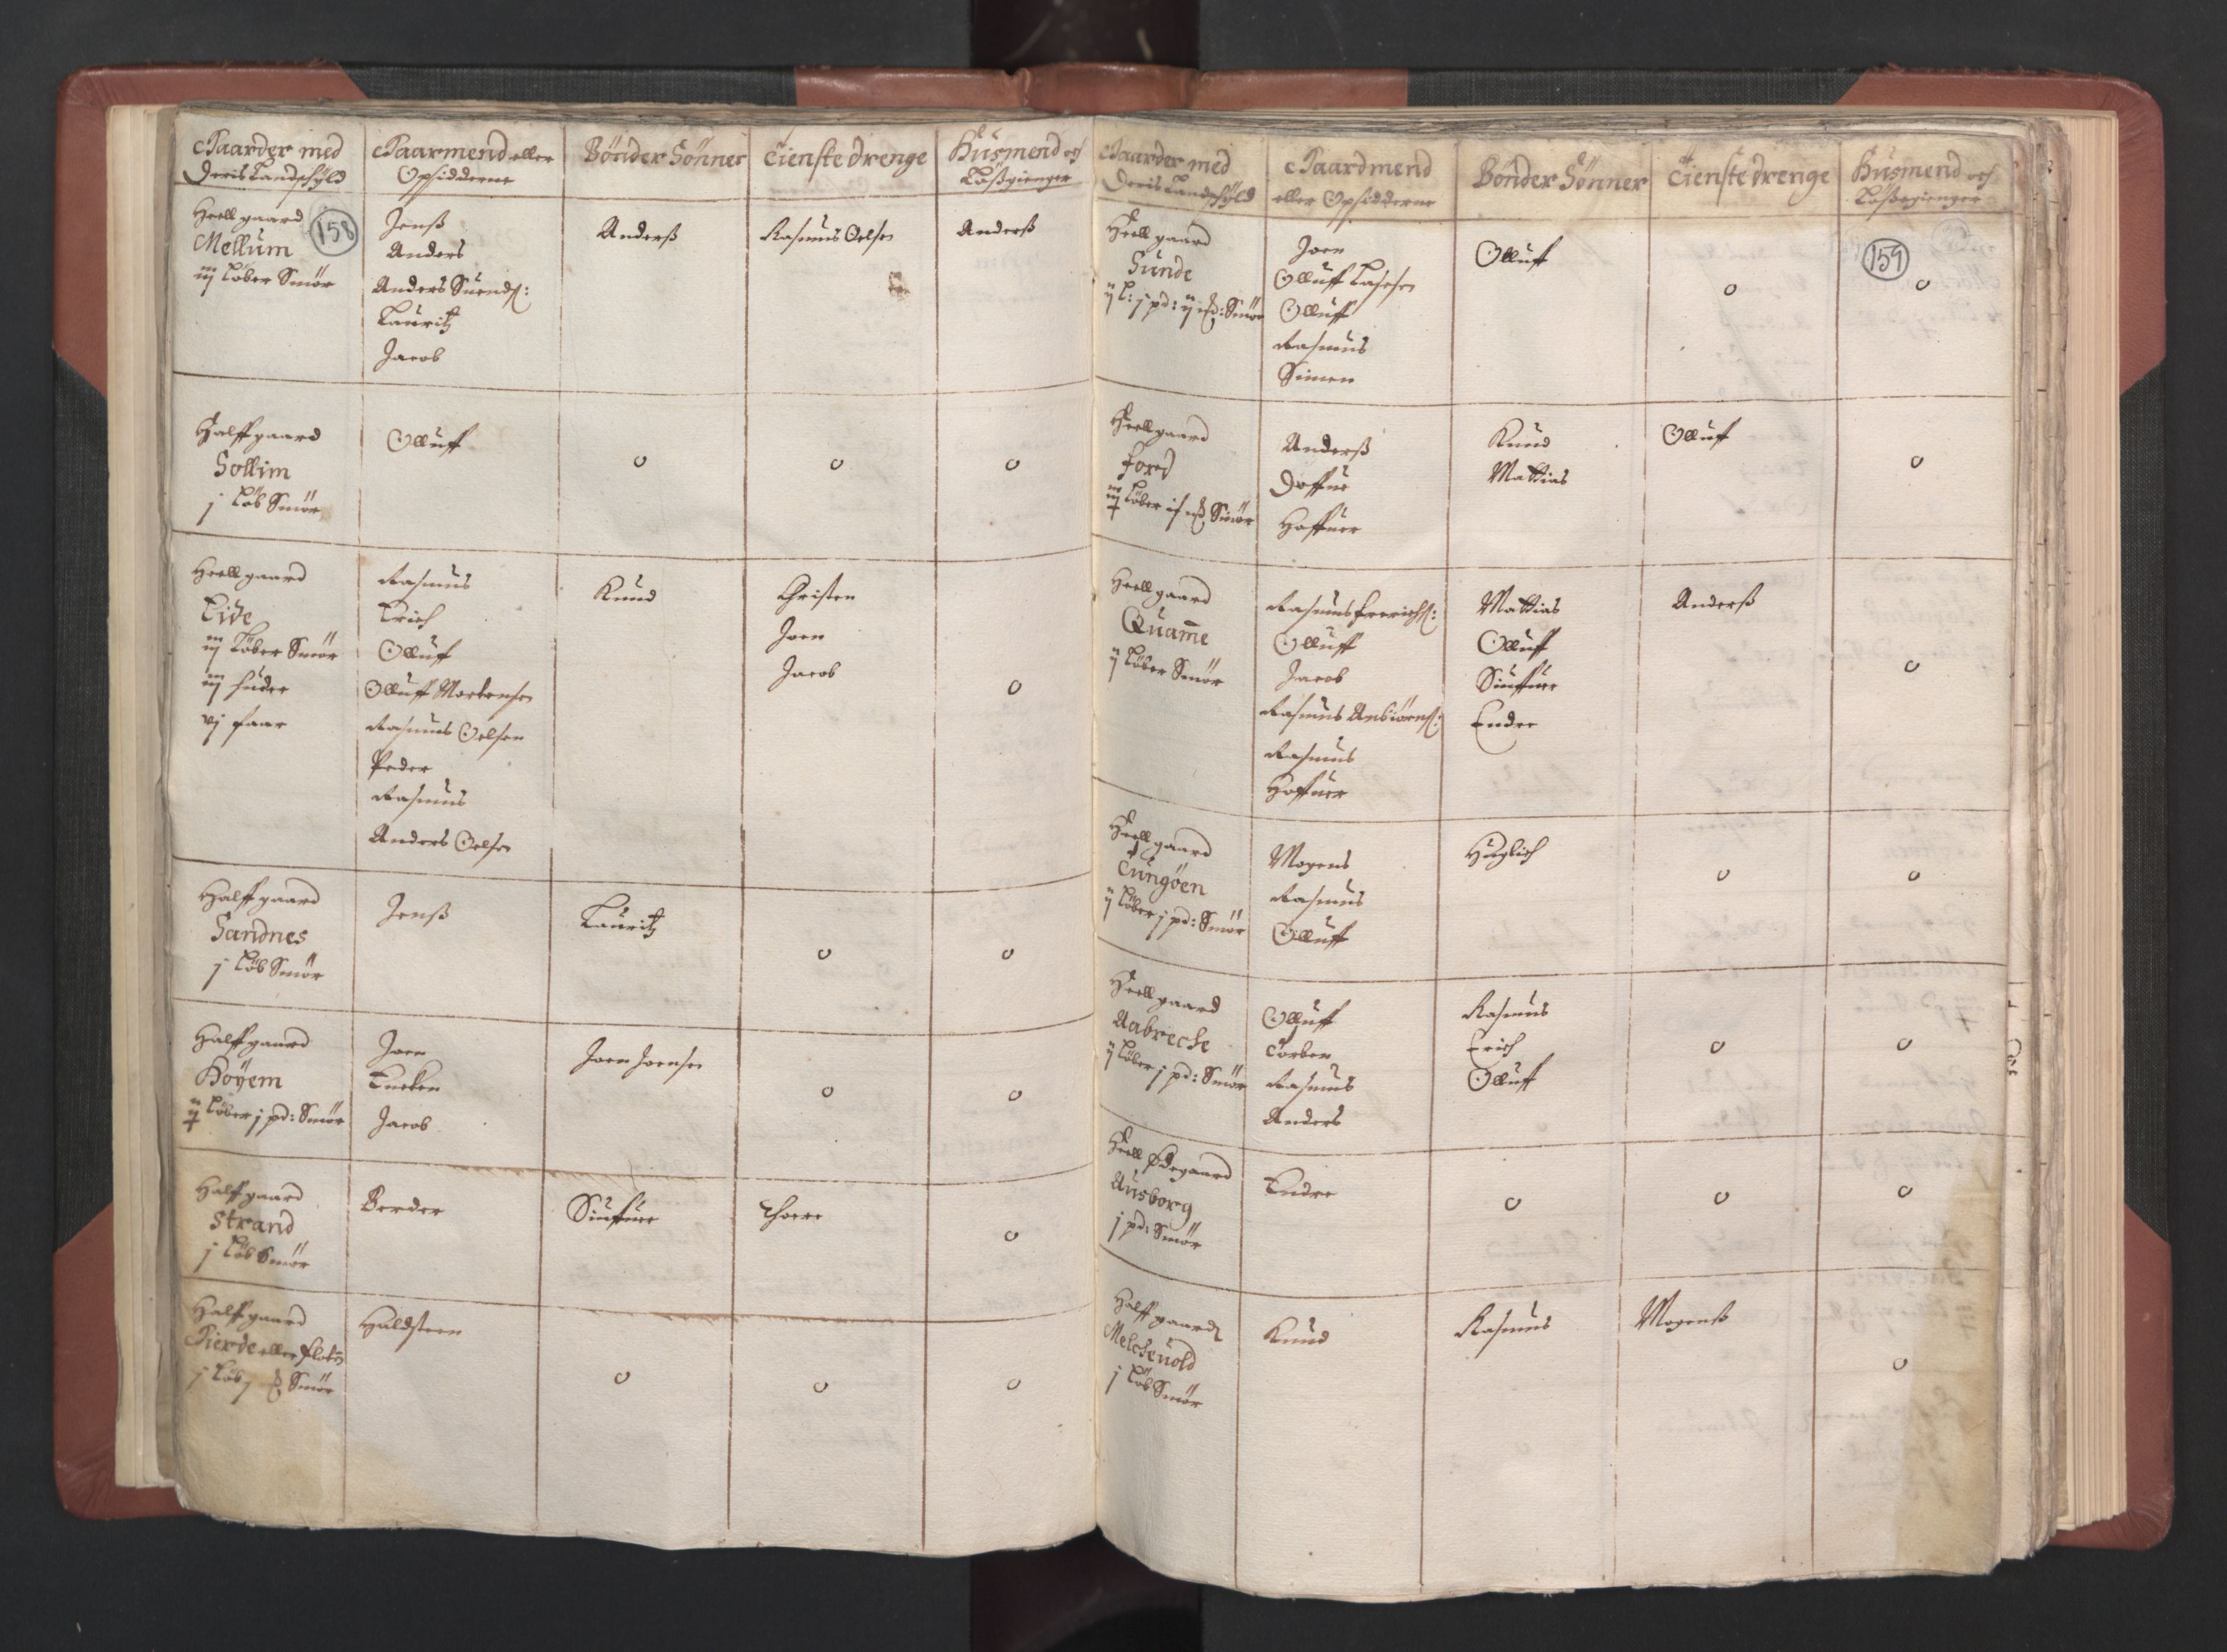 Gaarder med
Deris Landschyld
Gaarmend eller
Opsidderne
Bönder Sönner
Tienste drenge
Husmend och
Lößgienger
Heell gaard
158
Mellum
iij Löber Smör
Jenß
Anders
Anders Suends:
Lauritz
Jacob
Anderß
Rasmus Oelsen
Anderß
Halff gaard
Sollim
j Löb Smör
Olluff
o
o
o
Heell gaard
Eide
iij Löber Smör
iiij huder
vj faar
Rasmus
Erich
Olluff
Olluff Mortensen
Rasmus Oelsen
Peder
Rasmus
Anders Oelsen
Knud
Christen
Joen
Jacob
o
Halff gaard
Sandnes
j Löb Smör
Jenß
Lauritz
o
o
Halff gaard
Höyem
ij Löber j pd: Smör
Joen
Jacob
Joen Joensen
o
o
Halff gaard
Strand
j Löb Smör
Berder
Siuffuer
Thoere
o
Halff gaard
Gierde eller
j Löb j Smör
Haldsteen
o
o
o
Gaarder med
Deris Landschyld
Gaardmend
eller Opsidderne
Bönder Sönner
Tienste drenge
Husmend och
Lößgienger
159
Heell gaard
Sunde
ij L: j pd: ij Smör
Joen
Olluff Lassesen
Olluff
Rasmus
Simen
Olluff
o
o
Heell gaard
Fores
Löber Smör
Anderß
Deffue
Haffuer
Knud
Mattias
Olluff
o
Heell gaard
Quam̄e
ij Löber Smör
Rasmus Frerichs:
Olluff
Jacob
Rasmus Anbiörns:
Rasmus
Haffuer
Mattias
Olluff
Siuffuer
Endre
Anderß
o
Heell gaard
Tungöen
ij Löber j pd: Smör
Mogens
Rasmus
Olluff
Huglich
o
o
Heell gaard
Aabreche
ij Löber j pd: Smör
Olluff
Torben
Rasmus
Anders
Rasmus
Erich
Olluff
o
o
Heell Ødegaard
Ausborg
j pd: Smör
Endre
o
o
o
Halff gaard
Melcheuold
j Löb Smör
Knud
Rasmus
Mogenß
o